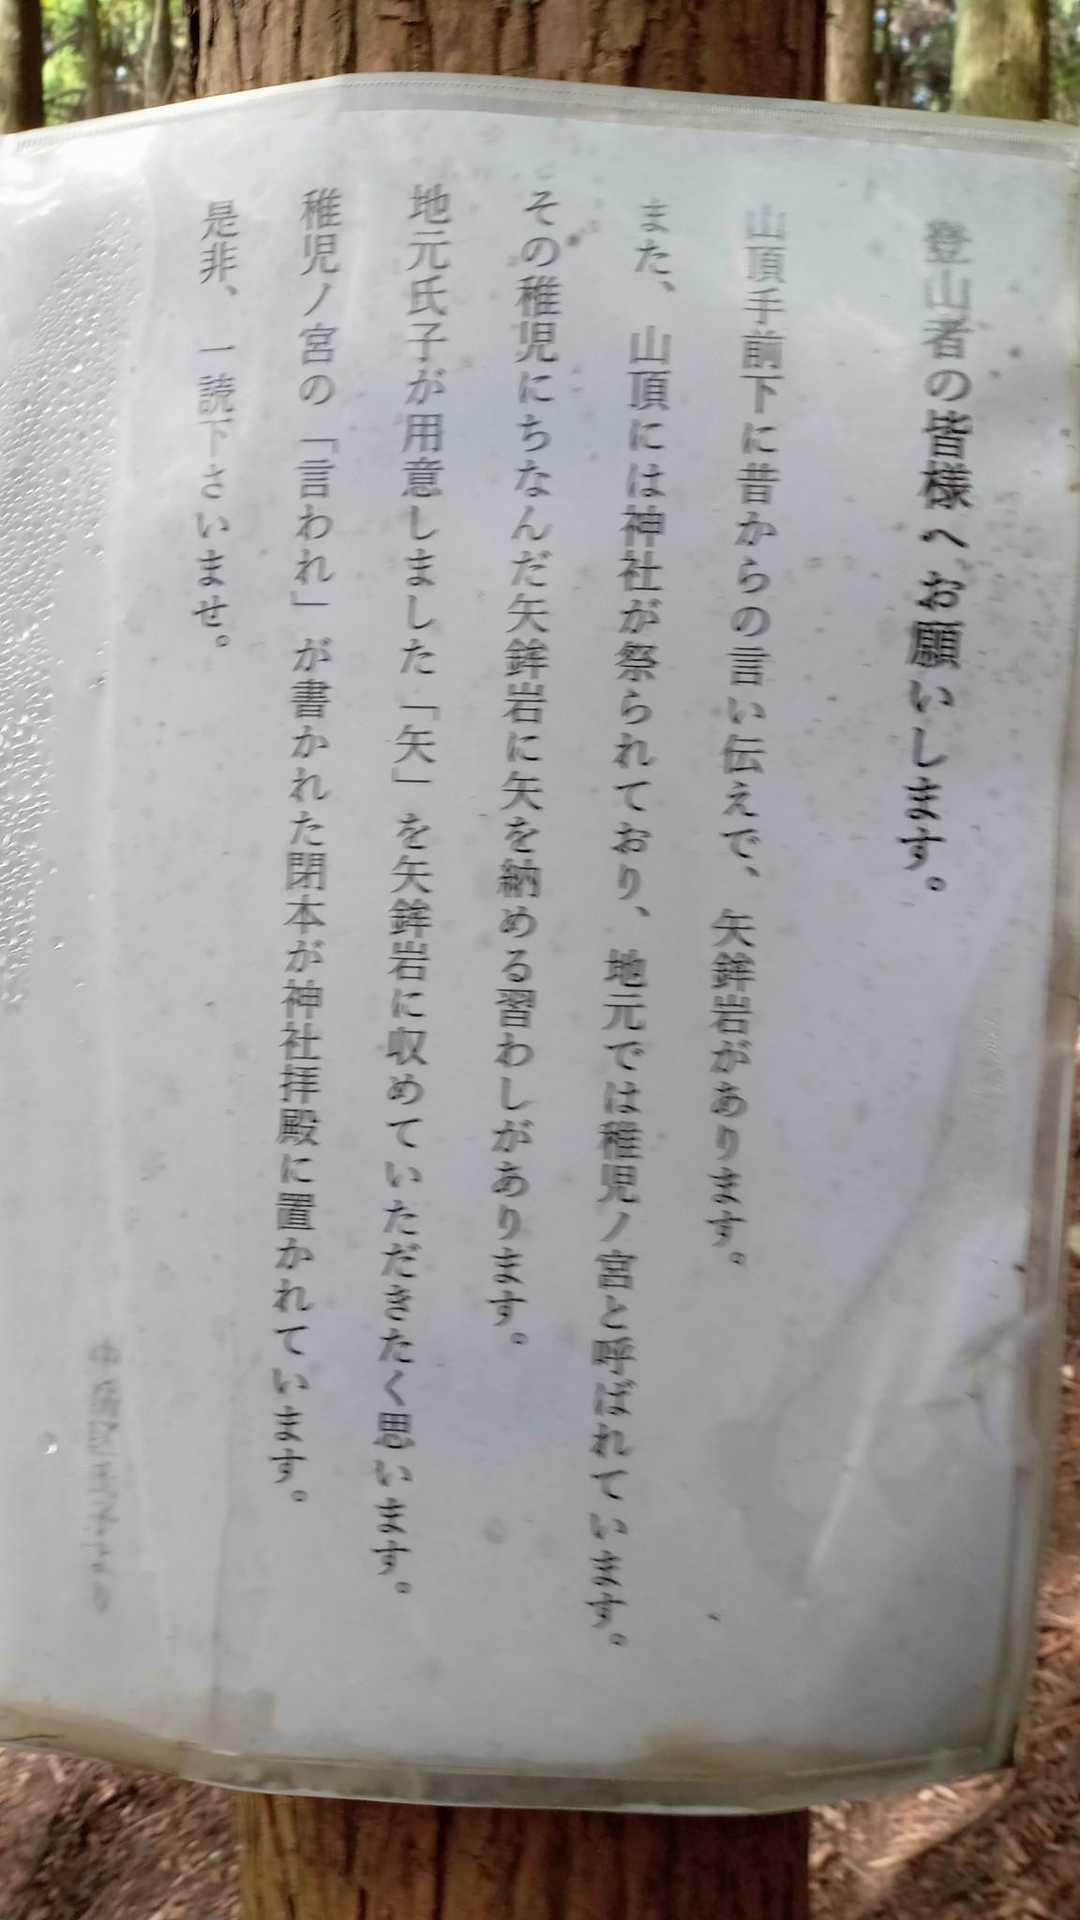 登山者の皆様へお願いします。
山頂手前下に昔からの言い伝えで、矢鉾岩があります。
また、山頂には神社が祭られており、地元では稚児ノ宮と呼ばれています。
その稚児にちなんだ矢鉾岩に矢を納める習わしがあります。
地元氏子が用意しました「矢」を矢鉾岩に収めていただきたく思います。
稚児ノ宮の「言われ」が書かれた閉本が神社拝殿に置かれています。
是非、一読下さいませ。